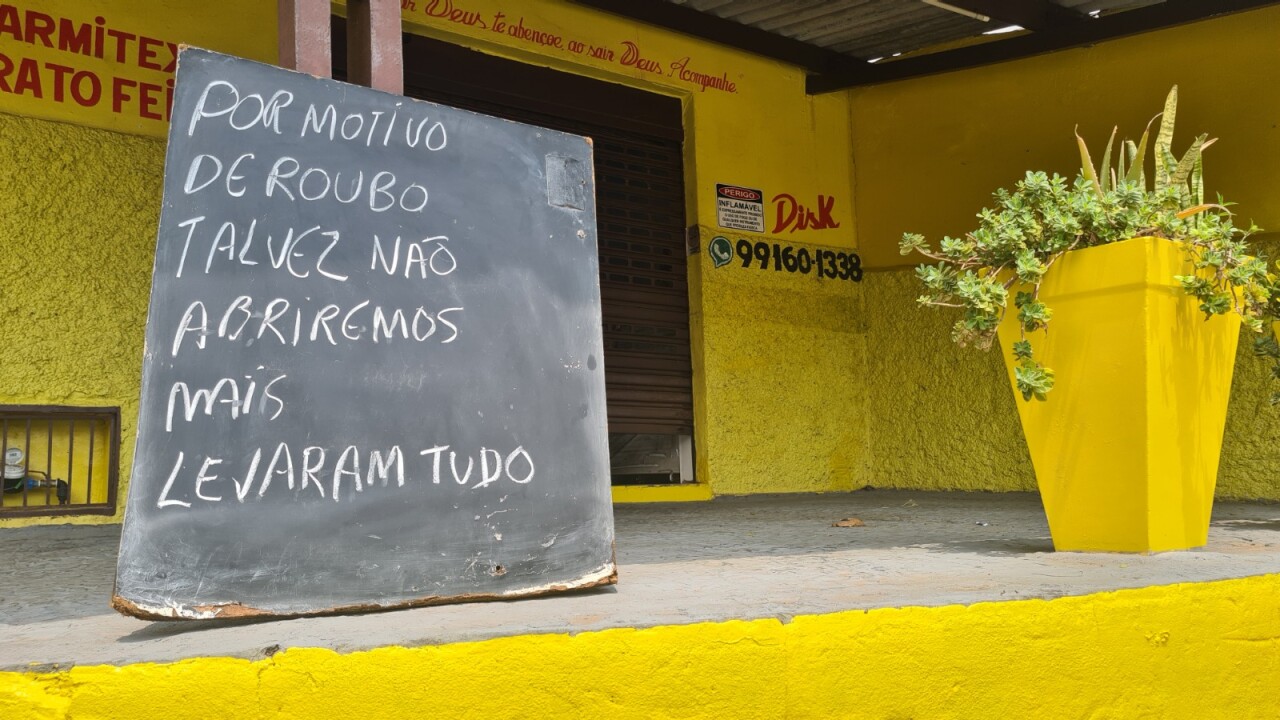 ARMITEX
RATO FEI
ar Deus te abençoe, ao sair Deus Acompanhe.
POR MOTIVO
DE ROUBO
TALVEZ NÃO
ABRIREMOS
MAIS
LEVARAM TUDO
PERIGO
INFLAMÁVEL
Disk
99160-1338